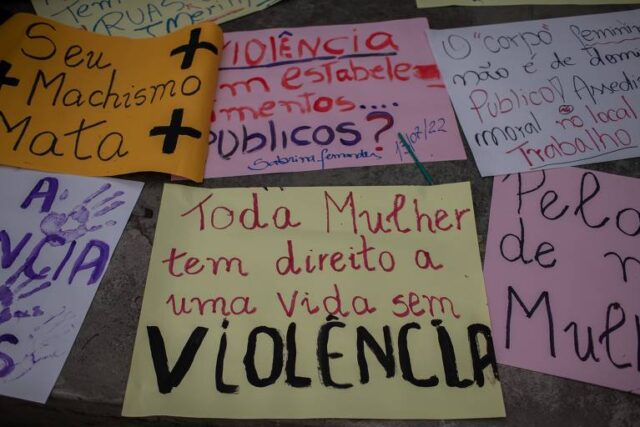 Tem
RUAS
Seu
Machismo
Mata
VIOLÊNCIA
em estabele
cimentos....
PÚBLICOS?
Sabrina Fernandes
13/07/22
O "corpo" feminin
não é de domí
Público! Assedio
moral no local
Trabalho
A
NCIA
Toda Mulher
tem direito a
uma vida sem
VIOLÊNCIA
Pelo
de
Mulh